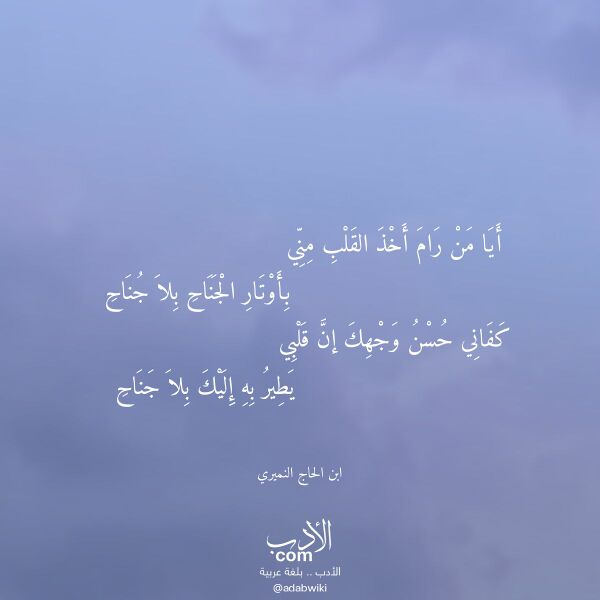 أَيَا مَنْ رَامَ أَخْذَ القَلْبِ مِنِّي
بِأَوْتَارِ الْجَنَاحِ بِلاَ جُنَاحِ
كَفَانِي حُسْنُ وَجْهِكَ إنَّ قَلْبِي
يَطِيرُ بِهِ إِلَيْكَ بِلاَ جَنَاحِ
ابن الحاج النميري
الأدب
com
الأدب .. بلغة عربية
@adabwiki